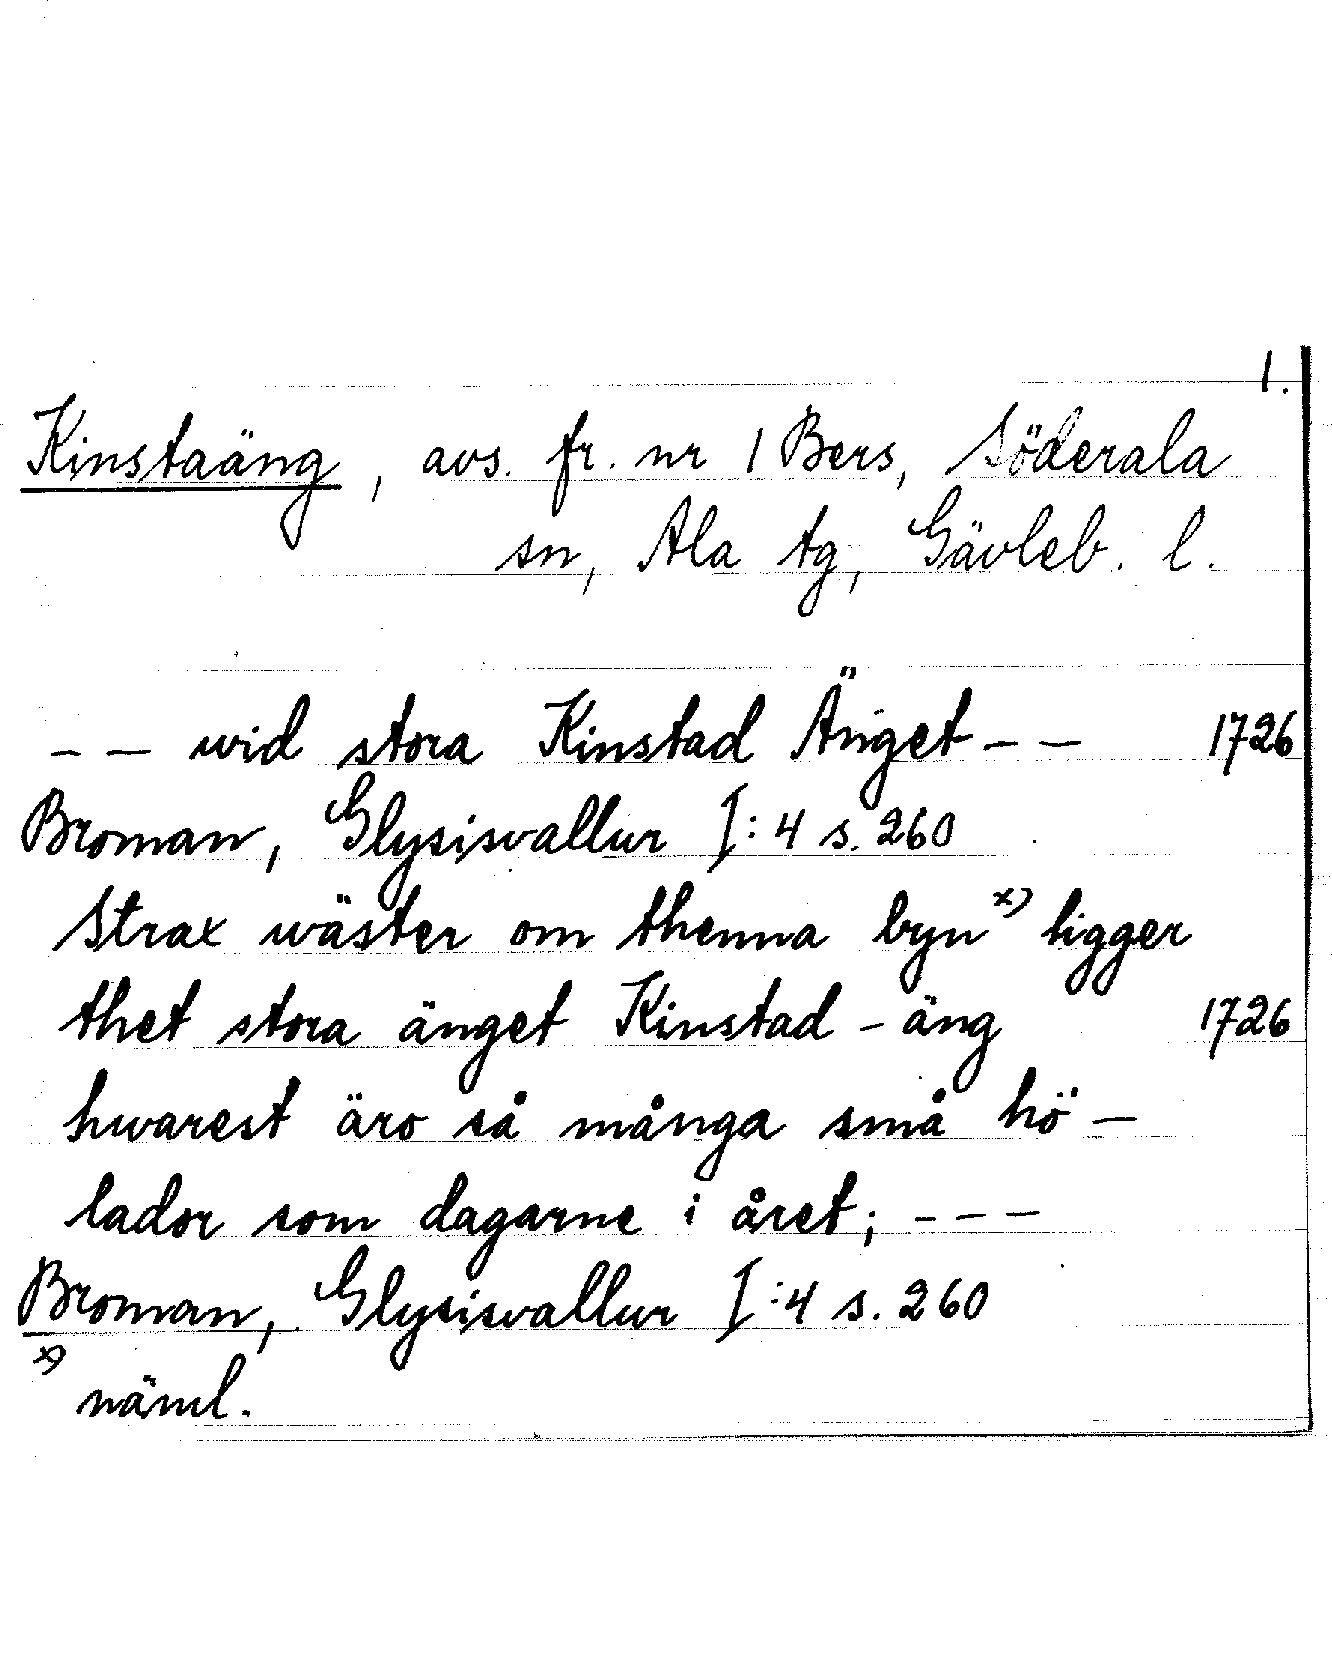 1.
Kinstaäng, avs. fr. nr 1 Bers, Söderala
sn, Ala tg, Gävleb. l.
-- wid stora Kinstad Änget -- 1726
Broman, Glysisvallur I:4 s. 260
Strax wäster om thenna byn x) ligger
thet stora änget Kinstad-äng 1726
hwarest äro så många små hö-
lador som dagarne i året; ---
Broman, Glysisvallur I:4 s. 260
x) näml.